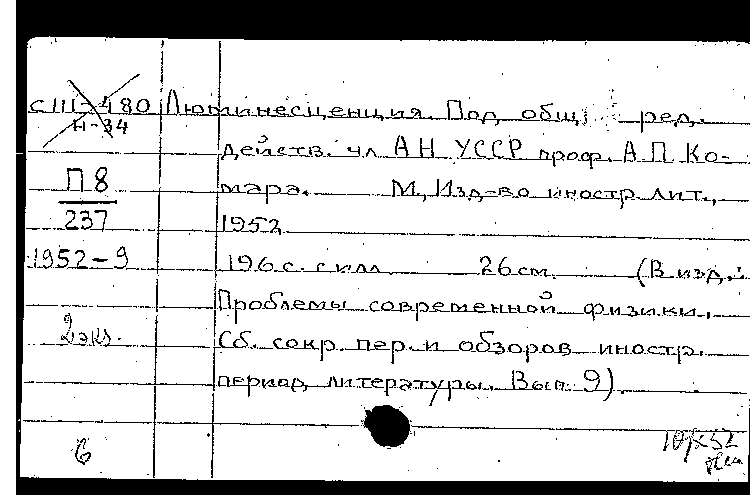 СШ-480 Люминесценция. Под общ. ред.
Н-34
действ. чл АН УССР проф. А.П. Ко-
П8 мара. М, Изд-во иностр. лит.,
237 1952
1952-9 196 с. с илл. 26 см. (В изд.:
Проблемы современной физики.
2 экз. Сб. сокр. пер. и обзоров иностр.
период. литературы. Вып. 9).
6 10/X 52